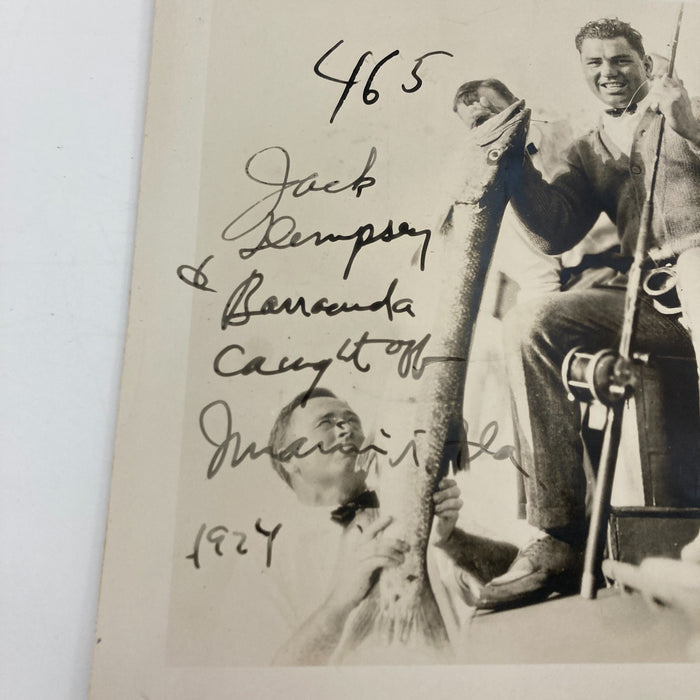 465
Jack
Dempsey
& Barracuda
Caught off
Miami Fla
1924